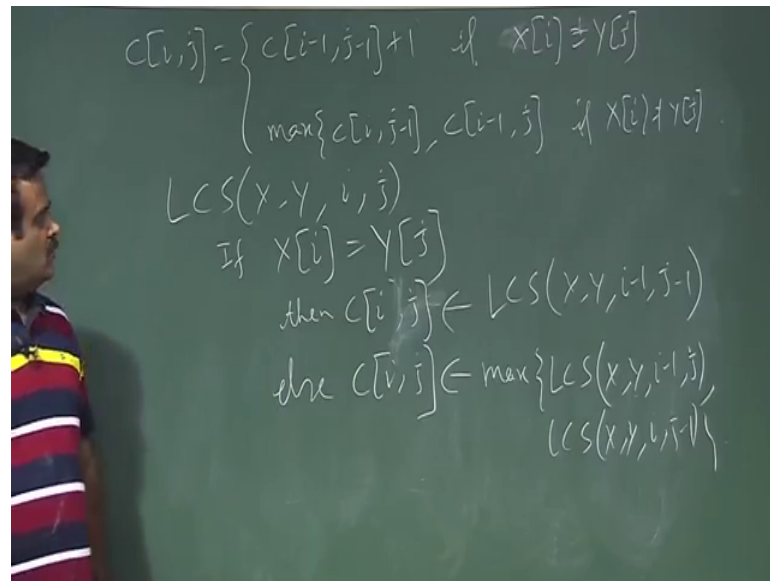 C[i,j] = { C[i-1,j-1]+1 if X[i]=Y[j]
max{C[i,j-1], C[i-1,j] if X[i]≠Y[j].
LCS(X,Y,i,j)
If X[i]=Y[j]
then C[i,j] ← LCS(X,Y,i-1,j-1)
else C[i,j] ← max{LCS(X,Y,i-1,j),
LCS(X,Y,i,j-1)}.